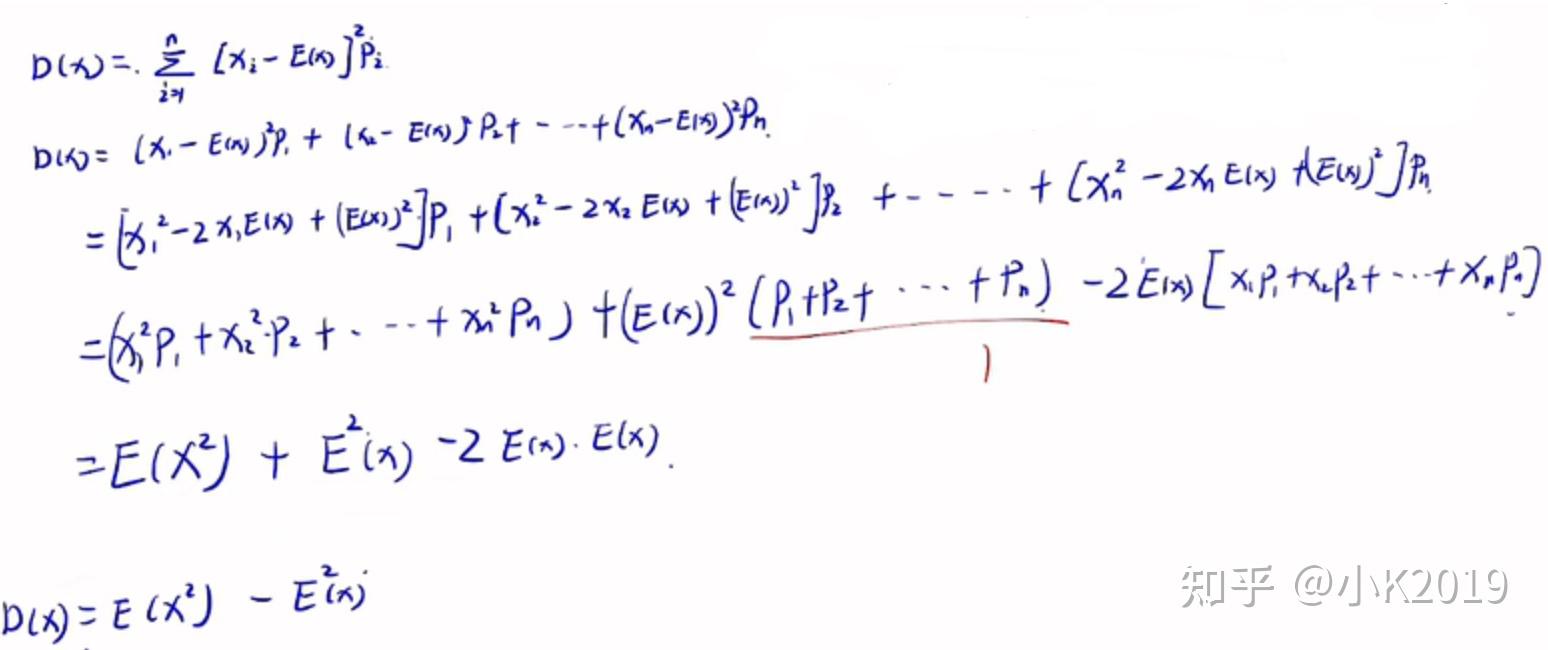 D(x)=. \sum_{i=1}^{n} [x_i - E(x)]^2 P_i
D(x) = (x_1 - E(x))^2 P_1 + (x_2 - E(x))^2 P_2 + - ··· + (x_n - E(x))^2 P_n
= [x_1^2 - 2x_1E(x) + (E(x))^2]P_1 + [x_2^2 - 2x_2 E(x) + (E(x))^2]P_2 + - - - - + [x_n^2 - 2x_n E(x) + (E(x))^2]P_n
= (x_1^2 P_1 + x_2^2·P_2 + · ··· + x_n^2 P_n) + (E(x))^2 (P_1+P_2+ ··· + P_n) - 2E(x) [x_1P_1 + x_2P_2 + ··· + x_nP_n]
1
= E(X^2) + E^2(x) - 2 E(x) · E(x).
D(X) = E(X^2) - E^2(x)
知乎 @小K2019